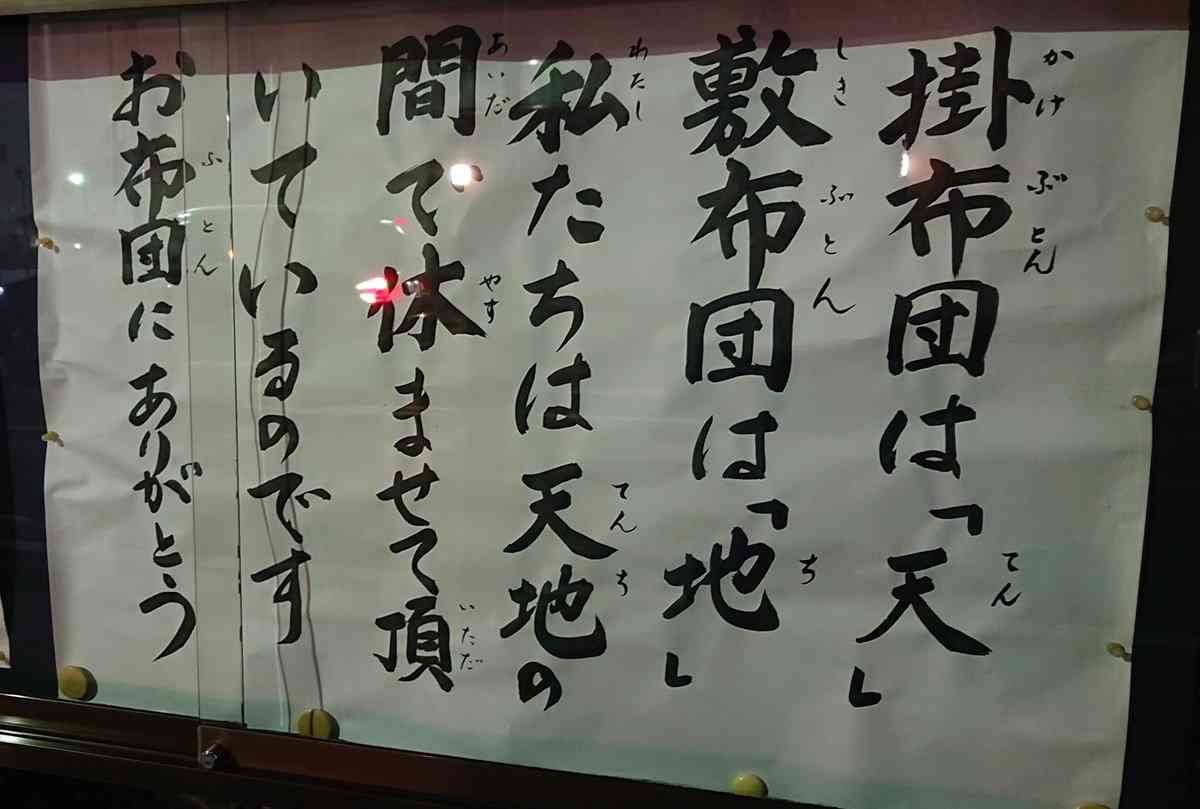 掛布団は「天」
敷布団は「地」
私たちは天地の
間で休ませて頂
いているのです
お布団にありがとう
かけ ぶとん てん
しき ぶとん ち
わたし てんち
あいだ やす いただ
ふとん